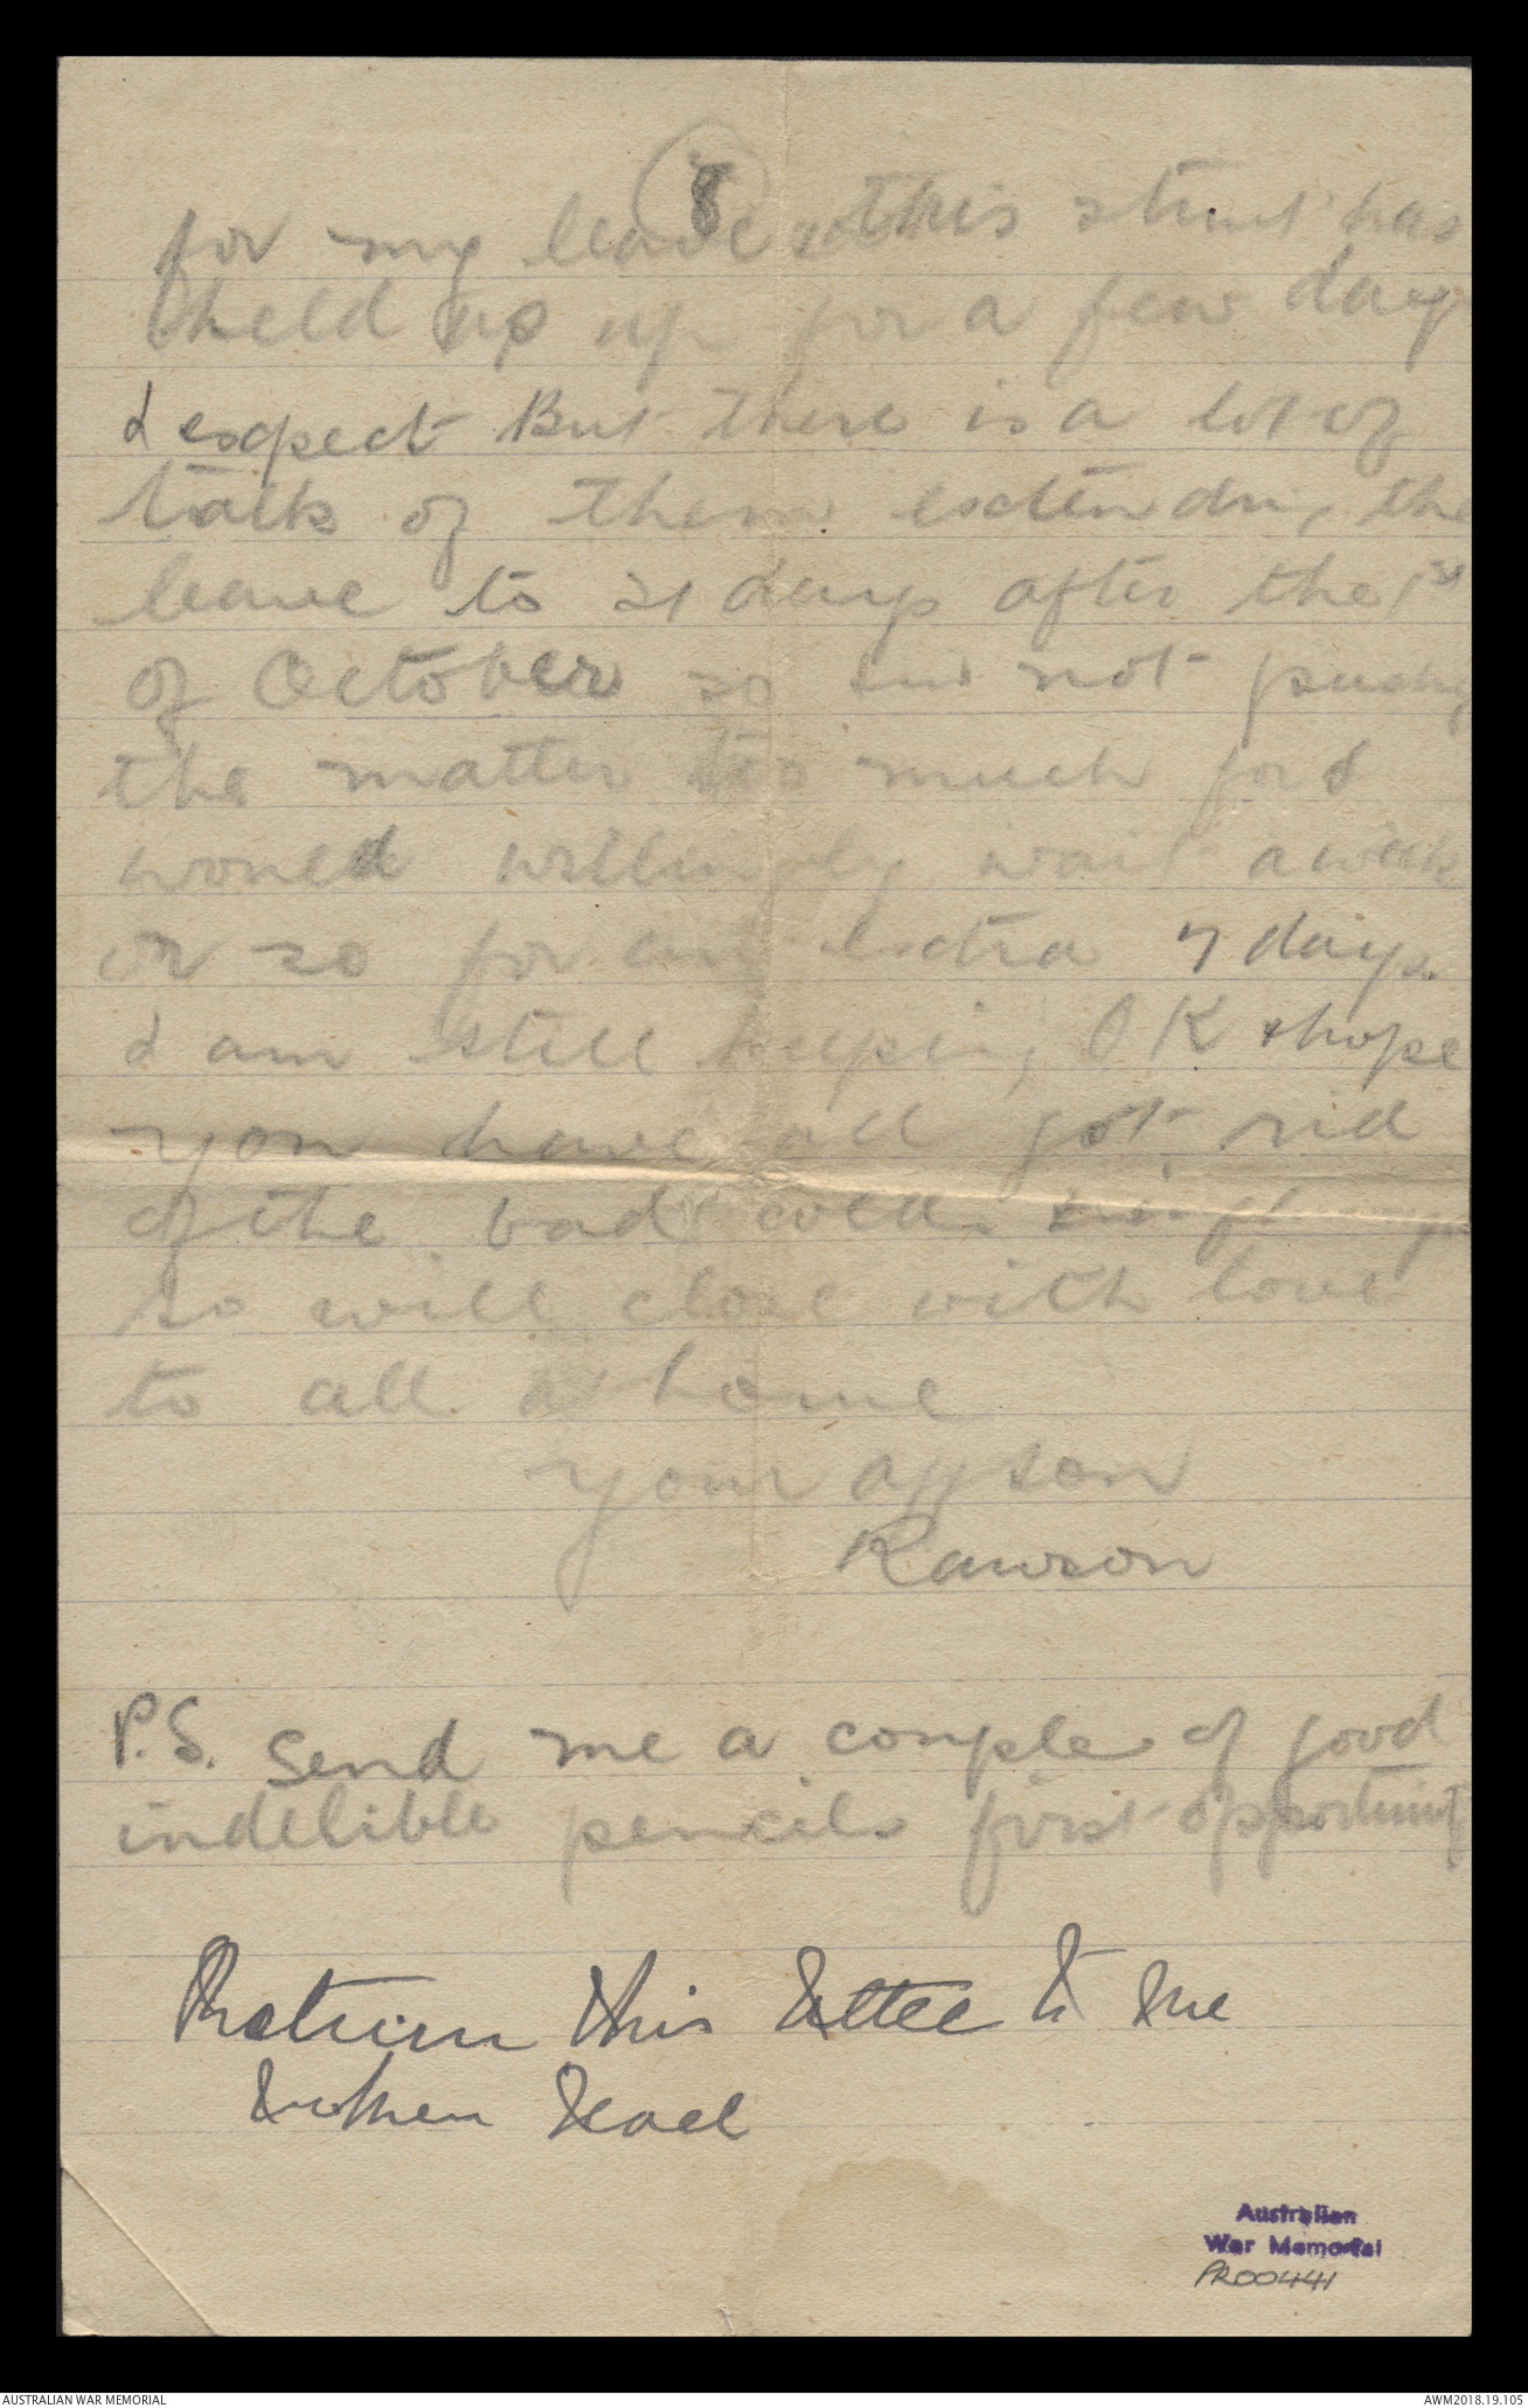 8
for my leave this stunt has
held up up for a few days
I expect But there is a lot of
talk of them extending the
leave to 21 days after the 1st
of October so am not pushing
the matter too much for I
would willingly wait a week
or so for an extra 7 days.
I am still keeping OK & hope
you have all got rid
of the bad colds
so will close with love
to all at home
your aff son
Rawson
P.S. Send me a couple of good
indelible pencils first opportunity
Return this letter to me
when read
Australian
War Memorial
PR00441
AUSTRALIAN WAR MEMORIAL
AWM2018.19.105